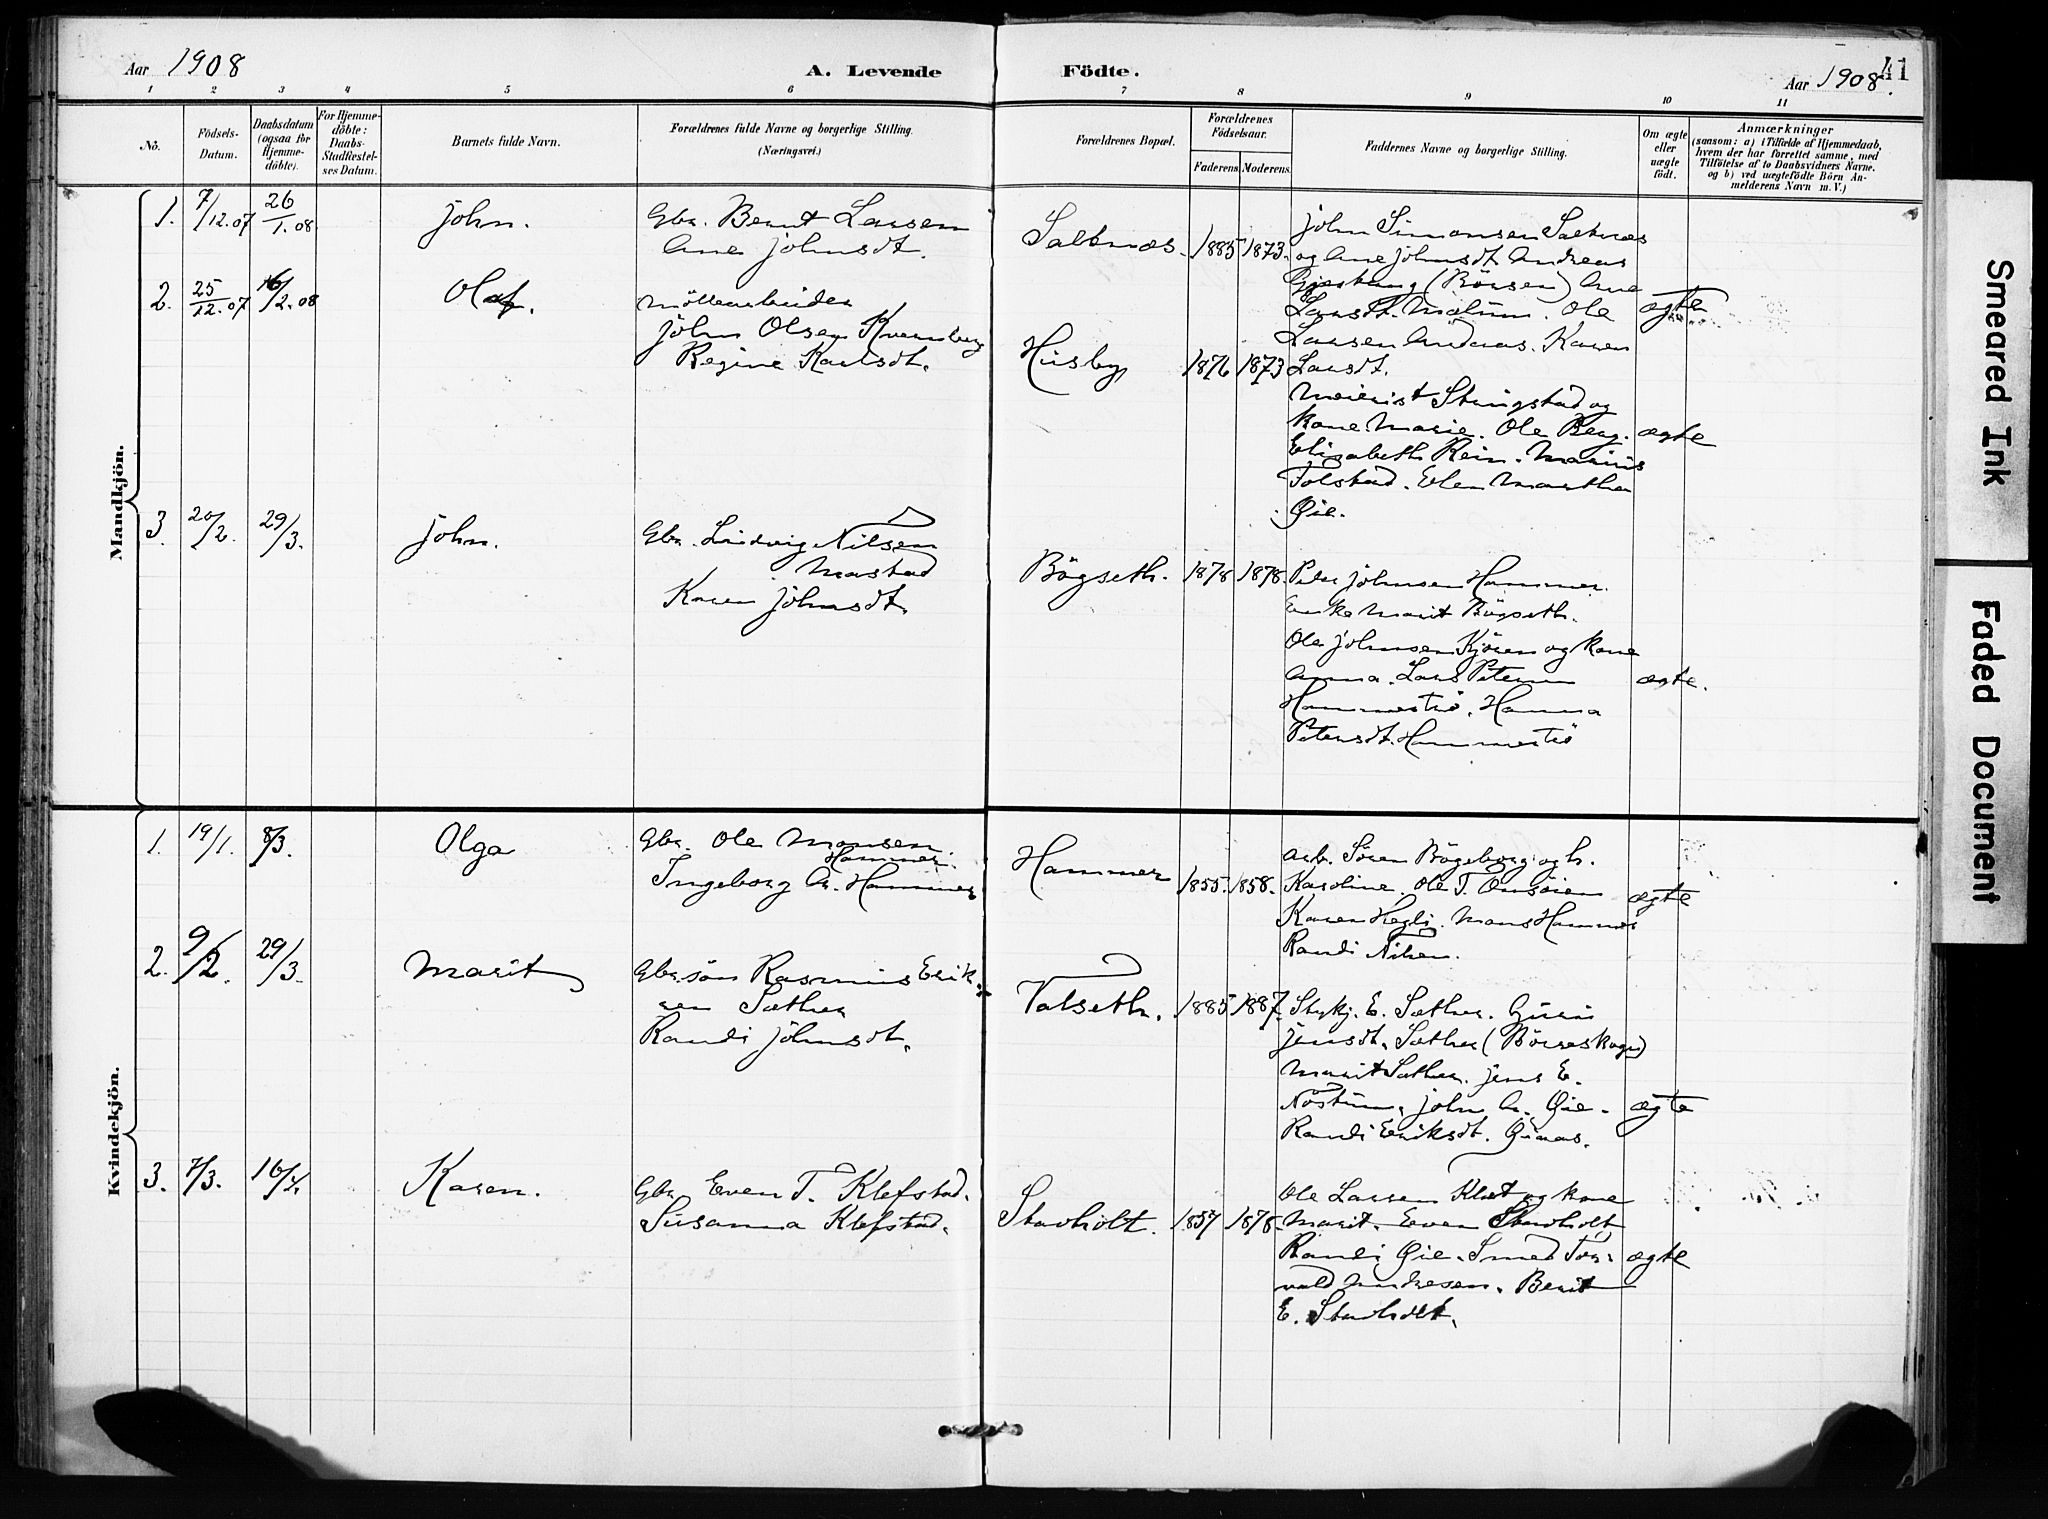 Aar 1908
A. Levende
Födte.
Aar 1908.
41
1 2 3 4 5 6 7 8 9 10 11
No.
Födsels-
Datum.
Daabsdatum
(ogsaa for
Hjemme-
döbte).
For Hjemme-
döbte:
Daabs-
Stadfæstel-
ses Datum.
Barnets fulde Navn.
Forældrenes fulde Navne og borgerlige Stilling.
(Næringsvei.)
Forældrenes Bopæl.
Forældrenes
Födselsaar.
Faderens Moderens.
Faddernes Navne og borgerlige Stilling.
Om ægte
eller
uægte
födt.
Anmærkninger
(saasom: a) i Tilfælde af Hjemmedaab,
hvem der har forrettet samme, med
Tilföielse af to Daabsvidners Navne.
og b) ved uægtefödte Börn An-
melderens Navn m. V.)
Mandkjön.
1. 7/12.07 26/1.08 John.
Gbr. Bernt Larsen
Ane Johnsdt.
Saltnæs. 1885 1873.
John Simonsen Saltnæs
og Ane Johnsdt. Andreas
(Börsen) Ane
Larsdt. Mælum. Ole
Larsen Andnæs. Karen
Larsdt.
ægte
2. 25/12.07 16/2.08 Olaf.
Möllearbeider
John Olsen Kvernberg
Regine Karlsdt.
Husby 1876 1873
Meierist Stringstad og
kone Marie. Ole Berg.
Elisabeth Rein. Marius
Tolstad. Elen Marthea
Øie.
ægte
3. 20/2. 29/3. John.
Gbr. Ludvig Nilsen
Mastad
Karen Johnsdt.
Bögseth. 1878 1878.
Peter Johnsen Hammer.
Enke Marit Bögseth.
Ole Johnsen Kjören og kone
Anna. Lars Petersen
Hammertrö. Hanna
Petersdt. Hammertrö
ægte.
Kvindekjön.
1. 19/1. 8/3. Olga
Gbr. Ole Monsen
Hammer.
Ingeborg A. Hammer
Hammer 1855. 1858.
Arb. Sören Bögeberg og h.
Karoline. Ole T.
Karen Hegli. Mons Hammer
Randi Nilsen.
ægte
2. 9/2. 29/3. Marit
Gbr.sön Rasmus Erik-
sen Sæther
Randi Johnsdt.
Valseth. 1885 1887.
Stykj. E. Sæther. Guru
Jensdt. Sæther (Börseskogn)
Marit Sæther. Jens E.
Nöstum. John A. Øie.
Randi Eriksdt.
ægte
3. 7/3. 16/4. Karen.
Gbr. Even T. Klefstad.
Susanna Klefstad.
Stavholt. 1857 1878.
Ole Larsen Klæt og kone
Marit. Even Stavholt
Randi Øie. Smed Tor-
vald Andresen. Berit
E. Stavholt.
ægte
Smeared Ink
Faded Document